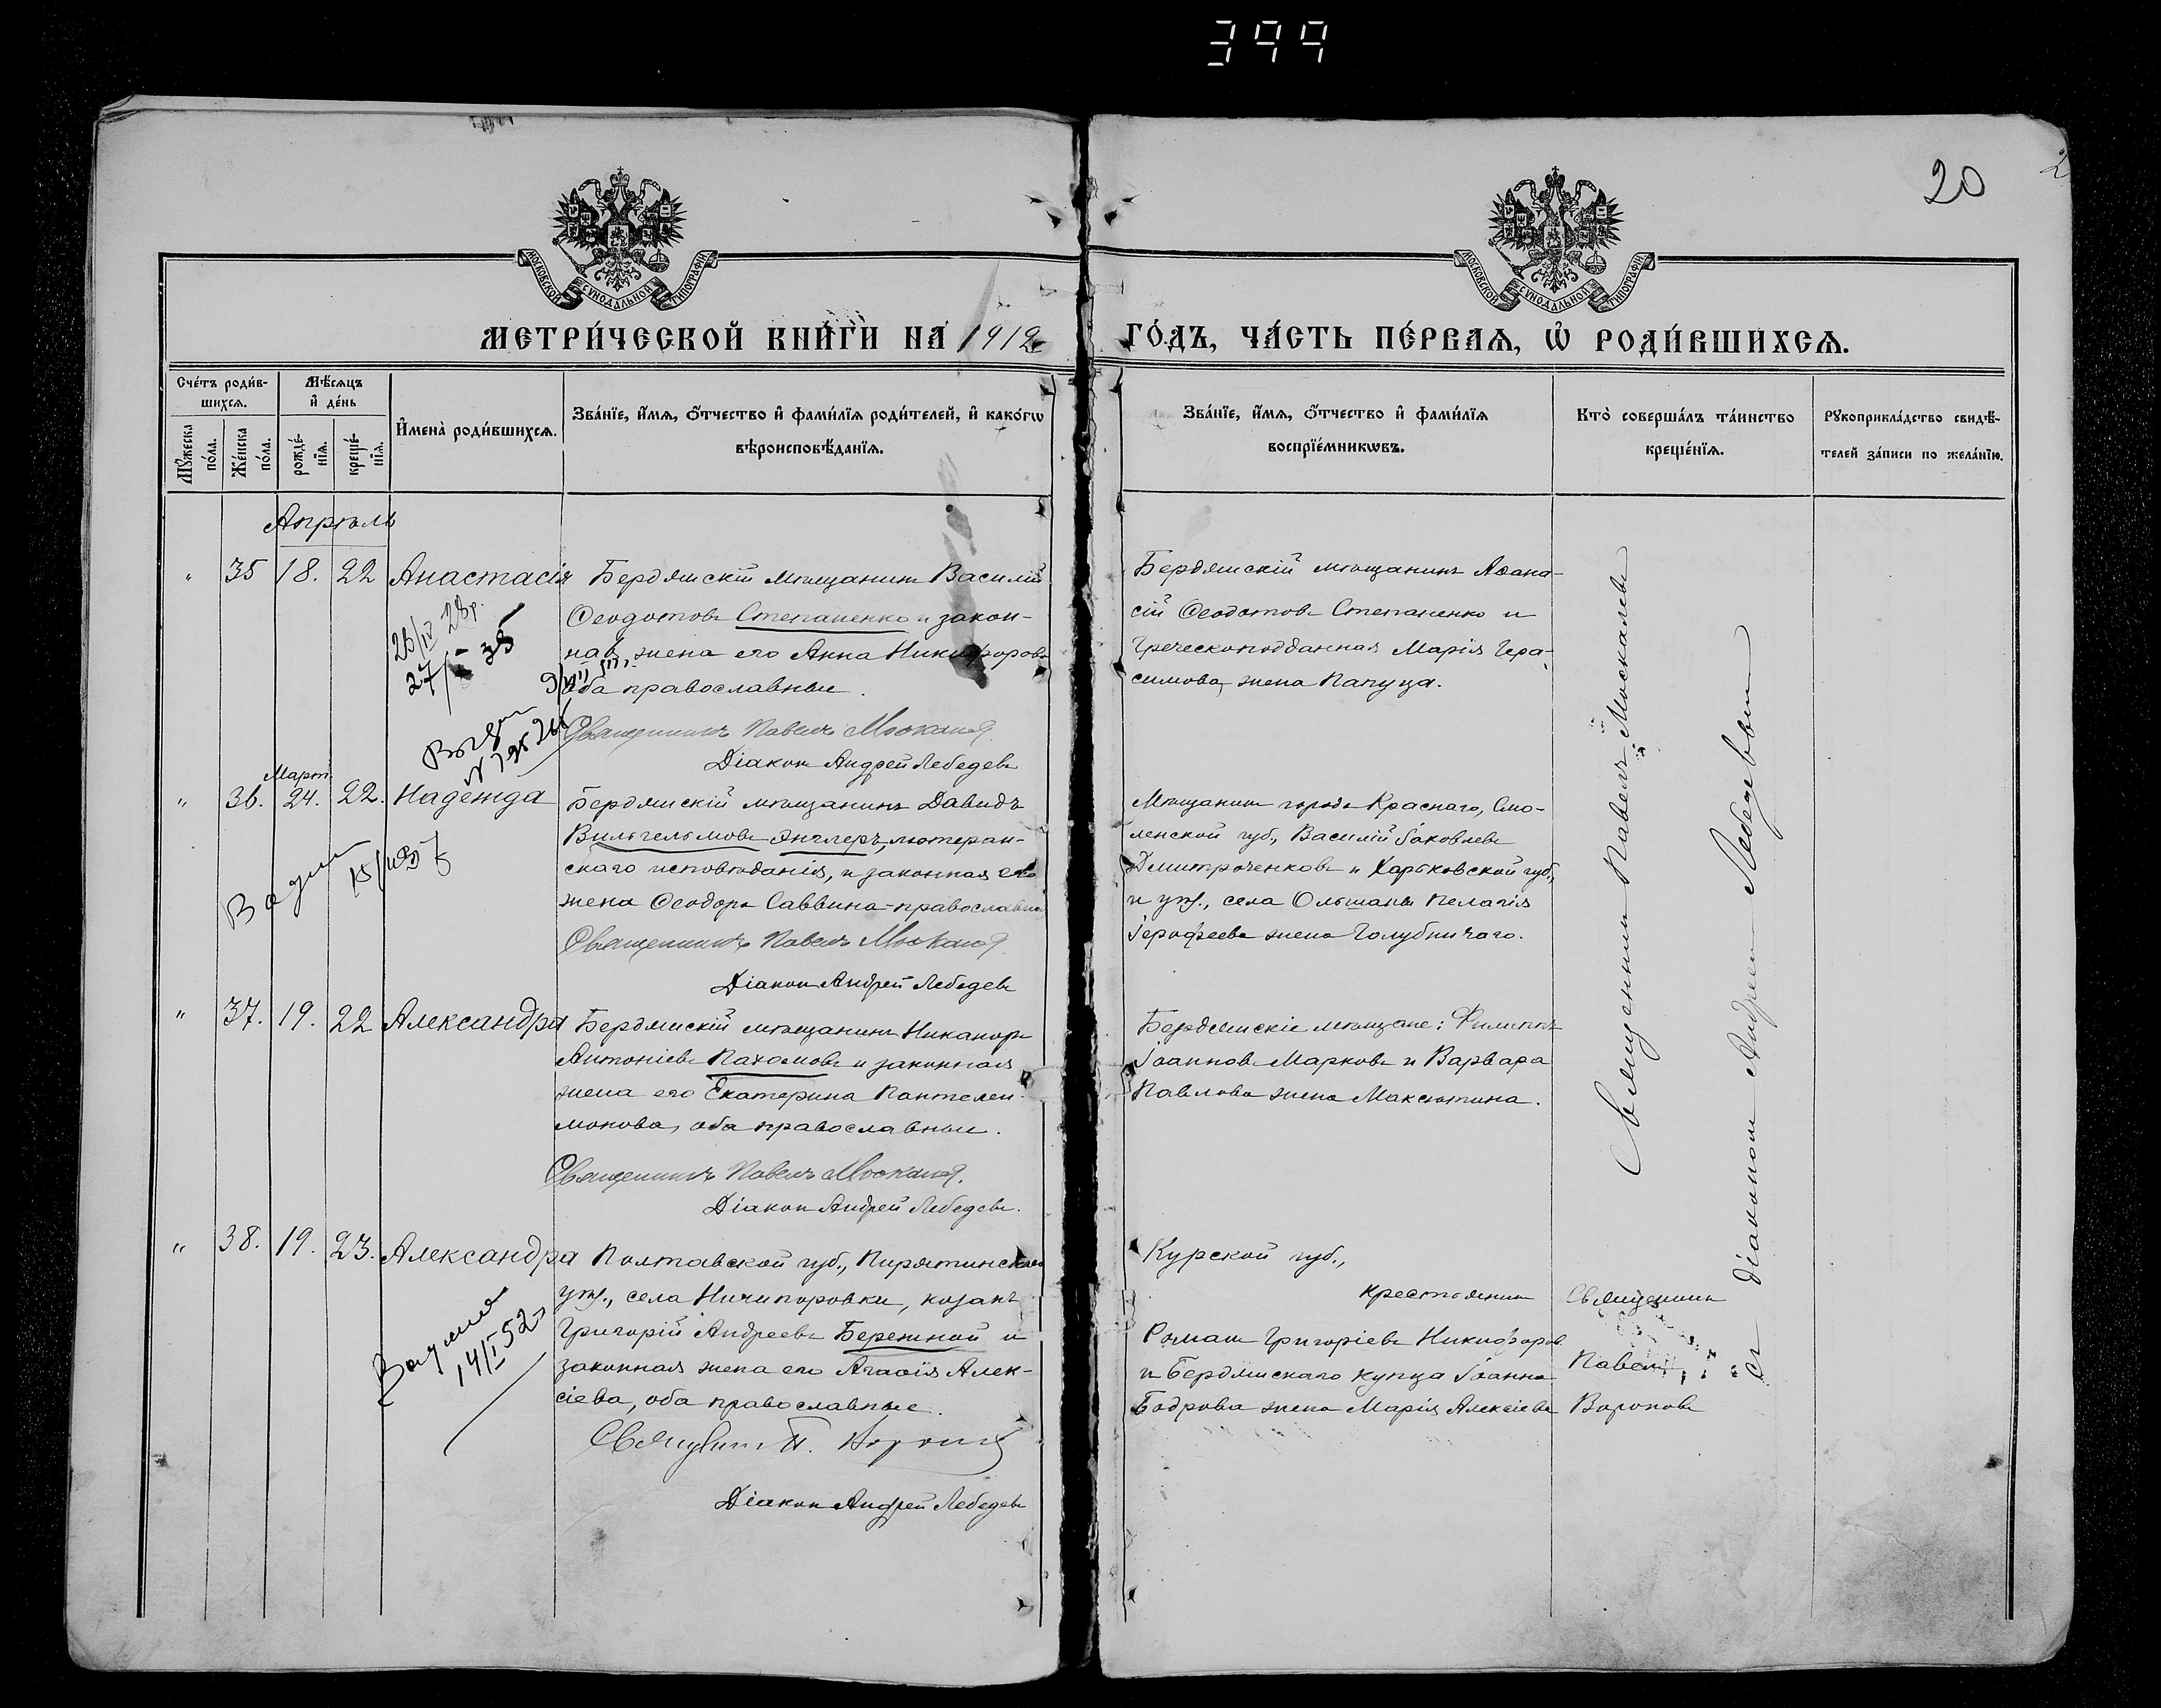 399
20
МОСКОВСКОЙ СУНОДАЛЬНОЙ ТИПОГРАФІИ
МОСКОВСКОЙ СУНОДАЛЬНОЙ ТИПОГРАФІИ
МЕТРИ́ЧЕСКОЙ КНИ́ГИ НА 1912
ГО́ДЪ, ЧА́СТЬ ПЕ́РВАѦ, Ѡ҆ РОДИ́ВШИХСѦ.
Сче́тъ роди́в-
шихсѧ.
Мꙋ́жеска по́ла.
Же́нска по́ла.
Мѣ́сѧцъ
и҆ де́нь
рожде́-
нїѧ.
креще́-
нїѧ.
И҆мена̀ роди́вшихсѧ.
Зва́нїе, и҆́мѧ, ѻ҆́тчество и҆ фами́лїѧ роди́телей, и҆ како́гѡ
вѣроисповѣ́данїѧ.
Зва́нїе, и҆́мѧ, ѻ҆́тчество и҆ фами́лїѧ
воспрїе́мникѡвъ.
Кто̀ соверша́лъ та́инство
креще́нїѧ.
Рꙋкоприкла́дство свидѣ́-
телей за́писи по жела́нїю.
Апрѣль
" 35 18. 22 Анастасія
Бердянскій мѣщанинъ Василій
Ѳеодотовъ Степаненко и закон-
ная жена его Анна Никифорова
оба православные.
Священникъ Павелъ Москалев
Діаконъ Андрей Лебедевъ
Бердянскій мѣщанинъ Аѳана-
сій Ѳеодотовъ Степаненко и
Греческоподданная Марія Гера-
симова, жена Папуца.
Мартъ
" 36. 24. 22. Надежда
Бердянскій мѣщанинъ Давидъ
Вильгельмовъ Энглеръ, лютеран-
скаго исповѣданія, и законная его
жена Ѳеодора Саввина-православная
Священникъ Павелъ Москалев
Діаконъ Андрей Лебедевъ
Мѣщанинъ города Краснаго, Смо-
ленской губ., Василій Іаковлевъ
Дмитроченковъ и Харьковской губ.,
и уѣз., села Ольшаны Пелагія
Іерофеева жена Голубничаго.
" 37. 19. 22 Александра
Бердянскій мѣщанинъ Никаноръ
Антоніевъ Пахомовъ и законная
жена его Екатерина Пантелеи-
монова, оба православные.
Священникъ Павелъ Москалев.
Діаконъ Андрей Лебедевъ.
Бердянскіе мѣщане: Филиппъ
Іоанновъ Марковъ и Варвара
Павлова жена Максютина.
Священникъ Павелъ Москалевъ
съ діакономъ Андреемъ Лебедевымъ
" 38. 19. 23. Александра
14/I 52
Полтавской губ., Пирятинскаго
уѣз., села Ничипоровки, козакъ
Григорій Андреевъ Бережной и
законная жена его Агаѳія Алек-
сіева, оба православные.
Діаконъ Андрей Лебедевъ
Курской губ.,
крестьянинъ
Романъ Григоріевъ Никифоровъ
и Бердянскаго купца Іоанна
Бодрова жена Марія Алексіева
Священникъ
Павелъ
Вороновъ